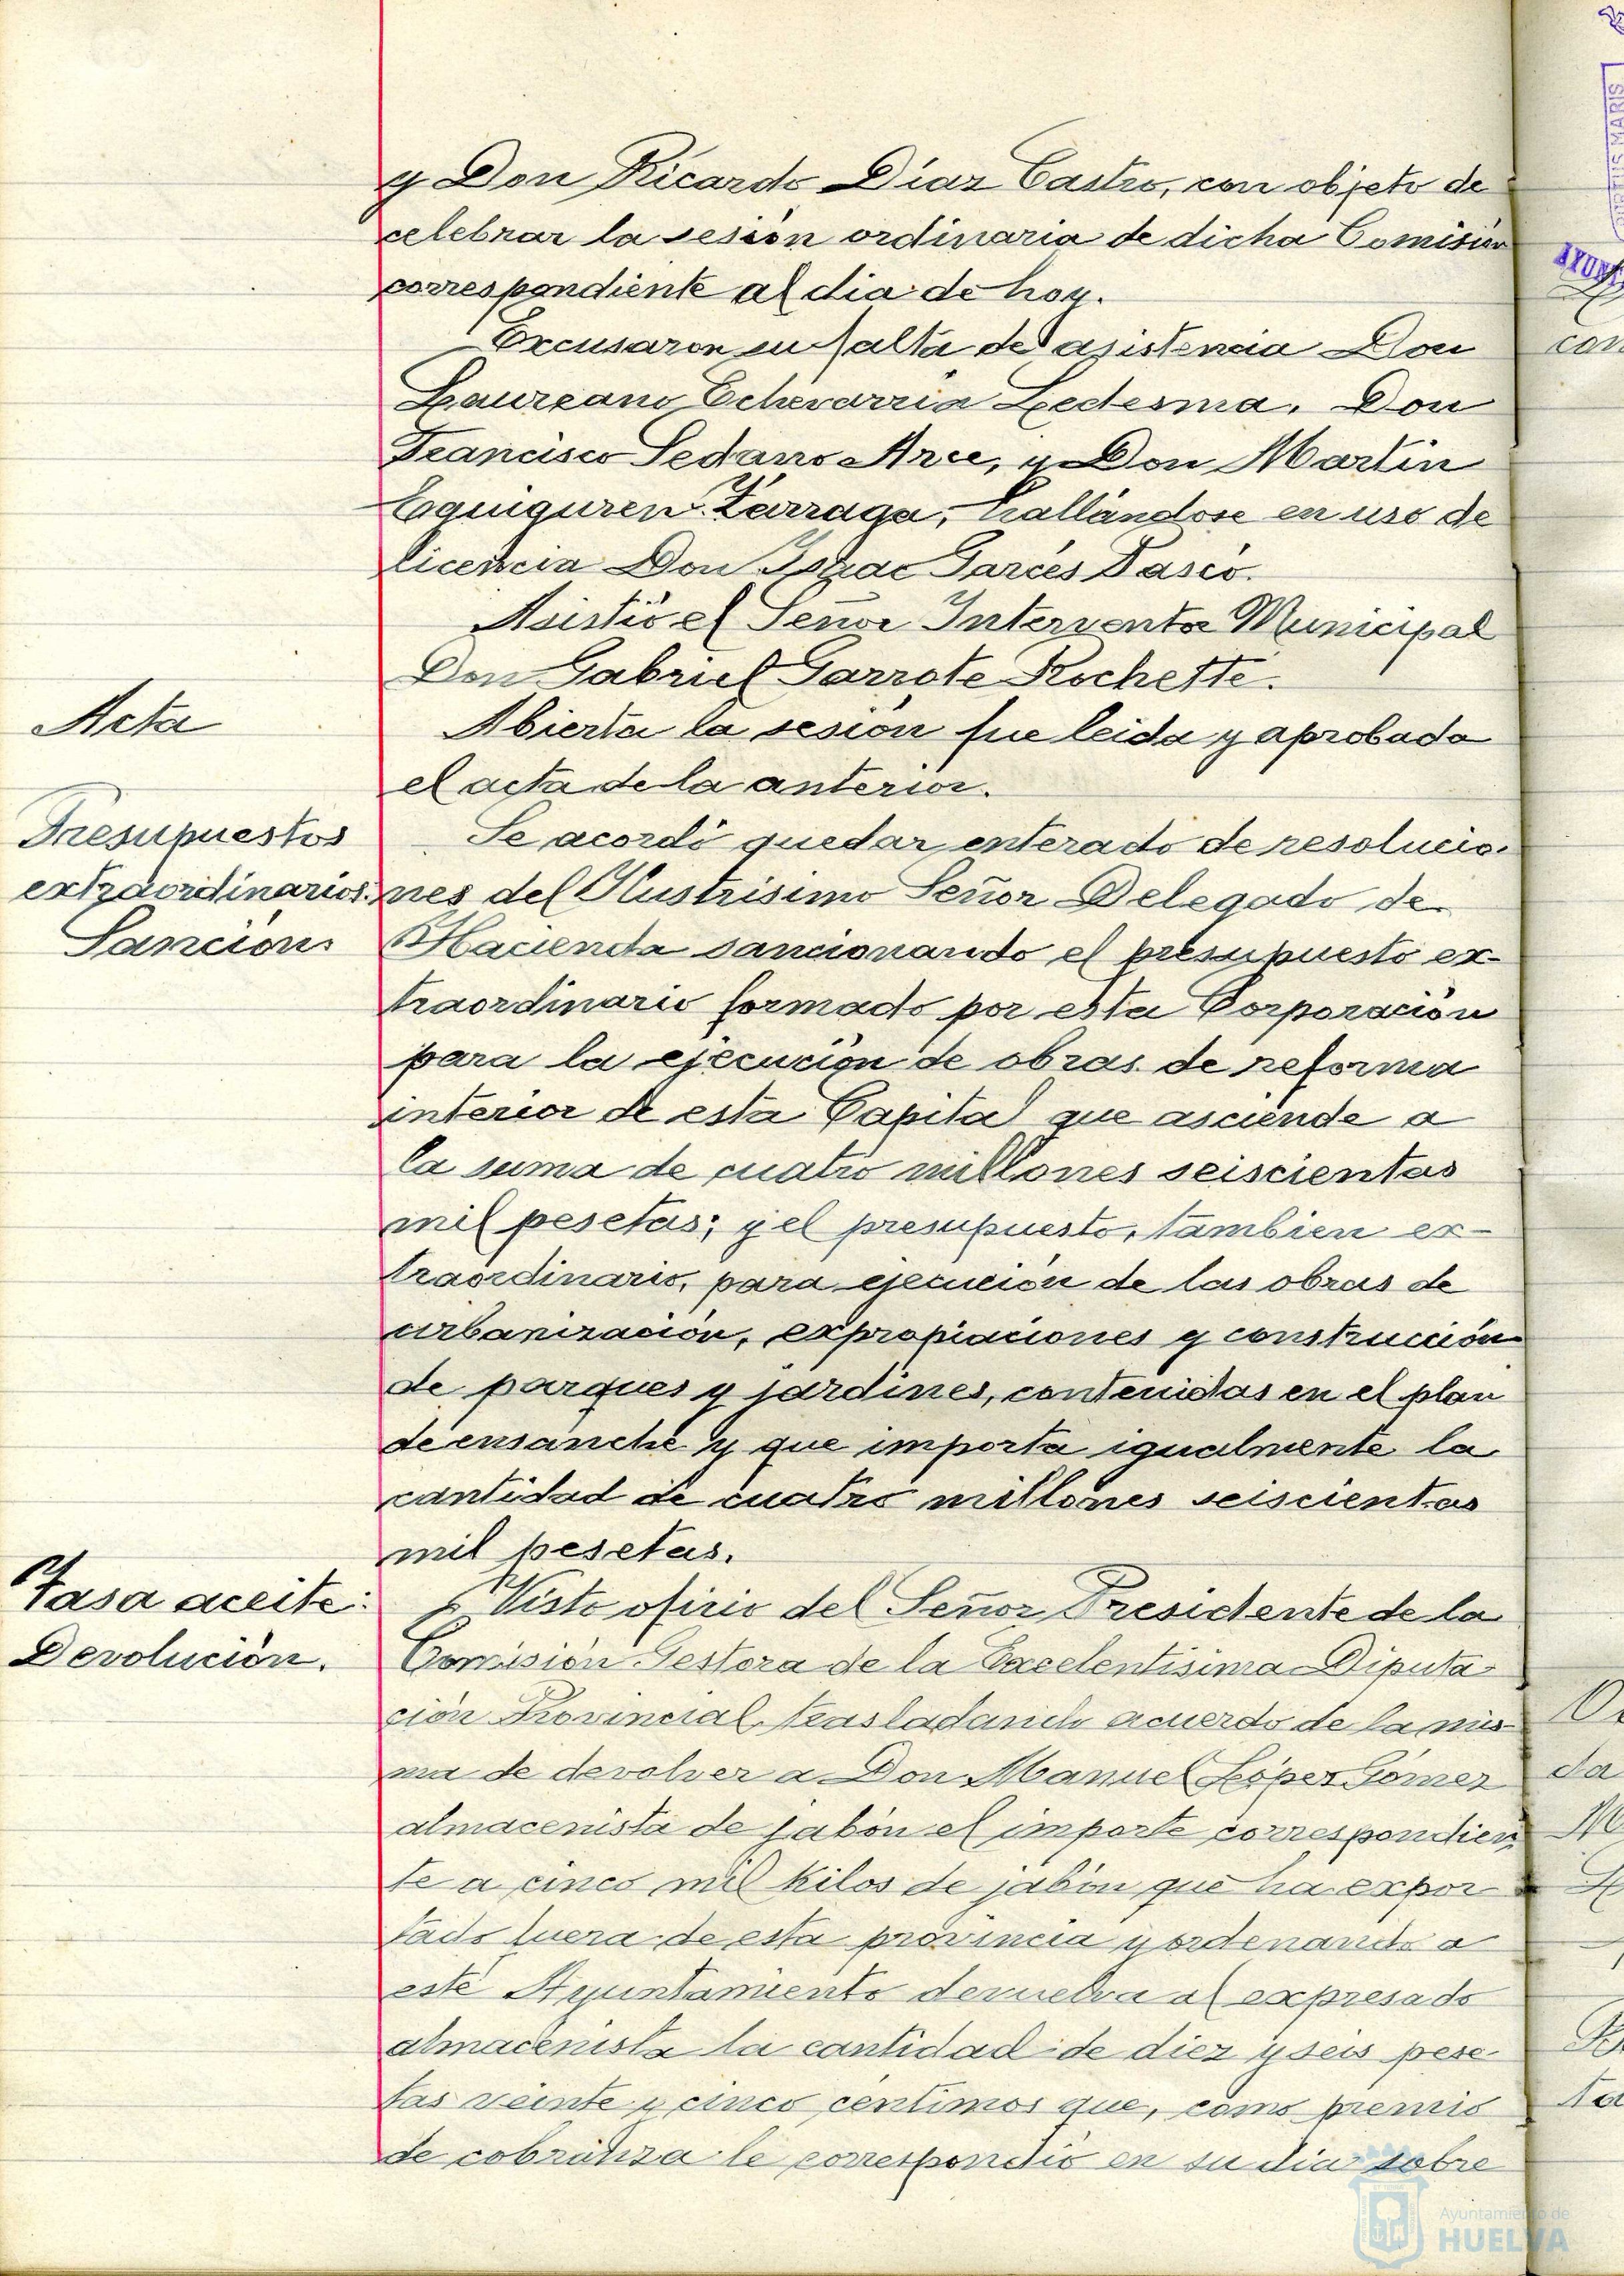 y Don Ricardo Díaz Castro, con objeto de
celebrar la sesión ordinaria de dicha Comisión
correspondiente al dia de hoy.
Excusaron su falta de asistencia Don
Laureano Echevarria Ledesma, Don
Francisco Sedano Arce, y Don Martin
Eguiguren Zarraga, hallándose en uso de
licencia Don Isaac Garcés Vasco.
Asistió el Señor Interventor Municipal
Don Gabriel Garrote Rochette.
Acta
Abierta la sesión fue leida y aprobada
el acta de la anterior.
Presupuestos
extraordinarios.
Sanción.
Se acordó quedar enterado de resolucio-
nes del Ilustrisimo Señor Delegado de
Hacienda sancionando el presupuesto ex-
traordinario formado por esta Corporación
para la ejecución de obras de reforma
interior de esta Capital que asciende a
la suma de cuatro millones seiscientas
mil pesetas; y el presupuesto, tambien ex-
traordinario, para ejecución de las obras de
urbanización, expropiaciones y construcción
de parques y jardines, contenidas en el plan
de ensanche y que importa igualmente la
cantidad de cuatro millones seiscientas
mil pesetas.
Tasa aceite:
Devolución.
Visto oficio del Señor Presidente de la
Comisión Gestora de la Excelentisima Diputa-
ción Provincial, trasladando acuerdo de la mis-
ma de devolver a Don Manuel López Gómez
almacenista de jabón el importe correspondien
te a cinco mil kilos de jabón que ha expor-
tado fuera de esta provincia y ordenando a
este Ayuntamiento devuelva al expresado
almacenista la cantidad de diez y seis pese-
tas veinte y cinco céntimos que, como premio
de cobranza le correspondió en su dia sobre
Ayuntamiento de
HUELVA